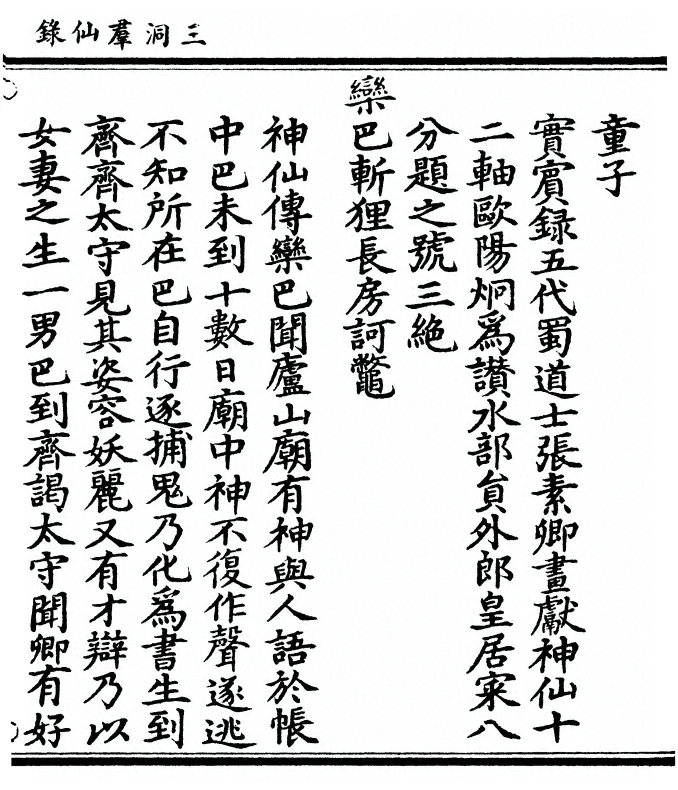 三洞羣仙錄
童子
實賓録五代蜀道士張素卿畫獻神仙十
二軸歐陽炯爲讃水部貟外郎皇居寀八
分題之號三絶
欒巴斬狸長房訶鼈
神仙傳欒巴聞廬山廟有神與人語於帳
中巴未到十數日廟中神不復作聲遂逃
不知所在巴自行逐捕鬼乃化爲書生到
齊齊太守見其姿容妖麗又有才辯乃以
女妻之生一男巴到齊謁太守聞卿有好